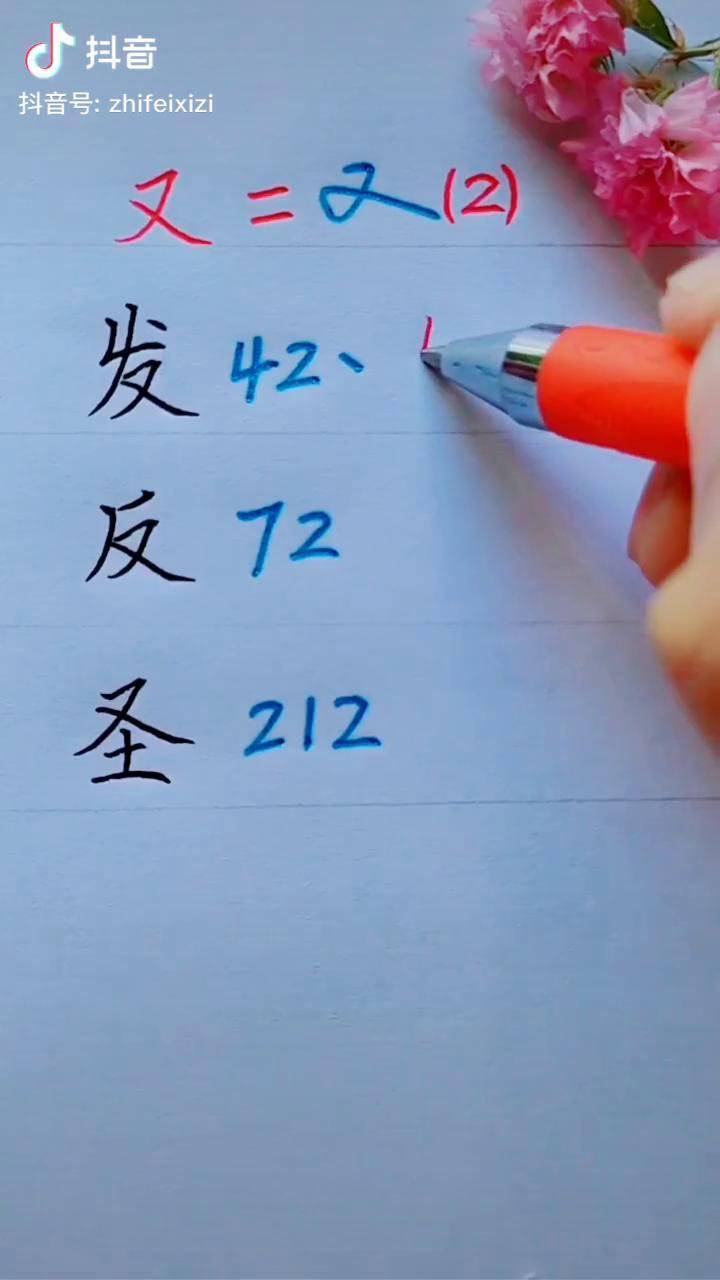 抖音
抖音号: zhifeixizi
又=又(2)
发 42、
反 72
圣 212